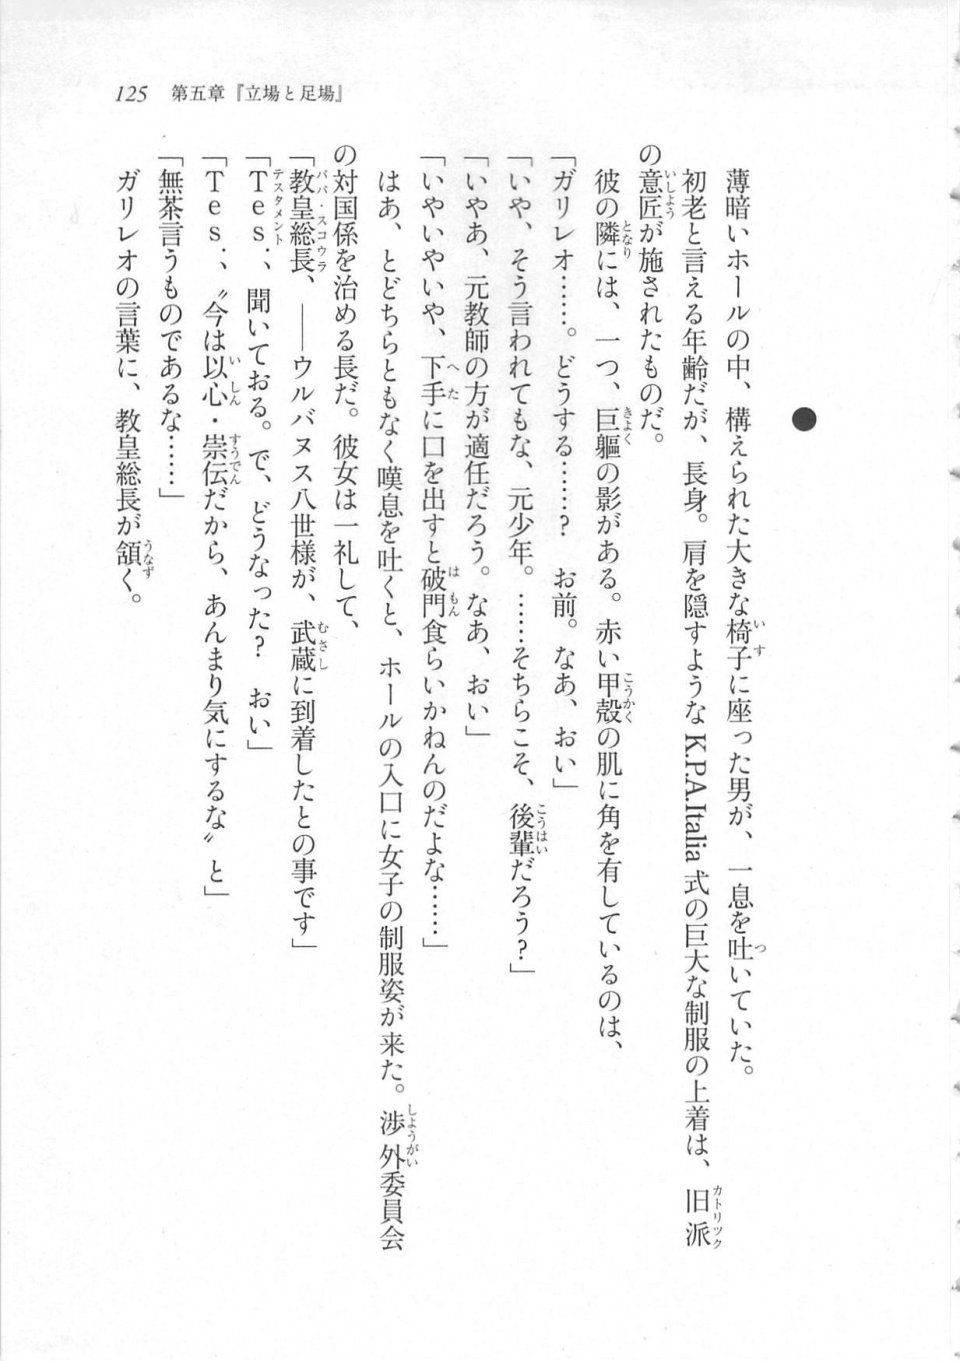 125 第五章『立場と足場』
●
薄暗いホールの中、構えられた大きな椅子に座った男が、一息を吐いていた。
初老と言える年齢だが、長身。肩を隠すような K.P.A.Italia 式の巨大な制服の上着は、旧派
の意匠が施されたものだ。
彼の隣には、一つ、巨軀の影がある。赤い甲殻の肌に角を有しているのは、
「ガリレオ……。どうする……? お前。なあ、おい」
「いや、そう言われてもな、元少年。……そちらこそ、後輩だろう?」
「いやあ、元教師の方が適任だろう。なあ、おい」
「いやいやいや、下手に口を出すと破門食らいかねんのだよな……」
はあ、とどちらともなく嘆息を吐くと、ホールの入口に女子の制服姿が来た。渉外委員会
の対国係を治める長だ。彼女は一礼して、
「教皇総長、――ウルバヌス八世様が、武蔵に到着したとの事です」
「Tes.、聞いておる。で、どうなった? おい」
「Tes.、〝今は以心・崇伝だから、あんまり気にするな〟と」
「無茶言うものであるな……」
ガリレオの言葉に、教皇総長が頷く。